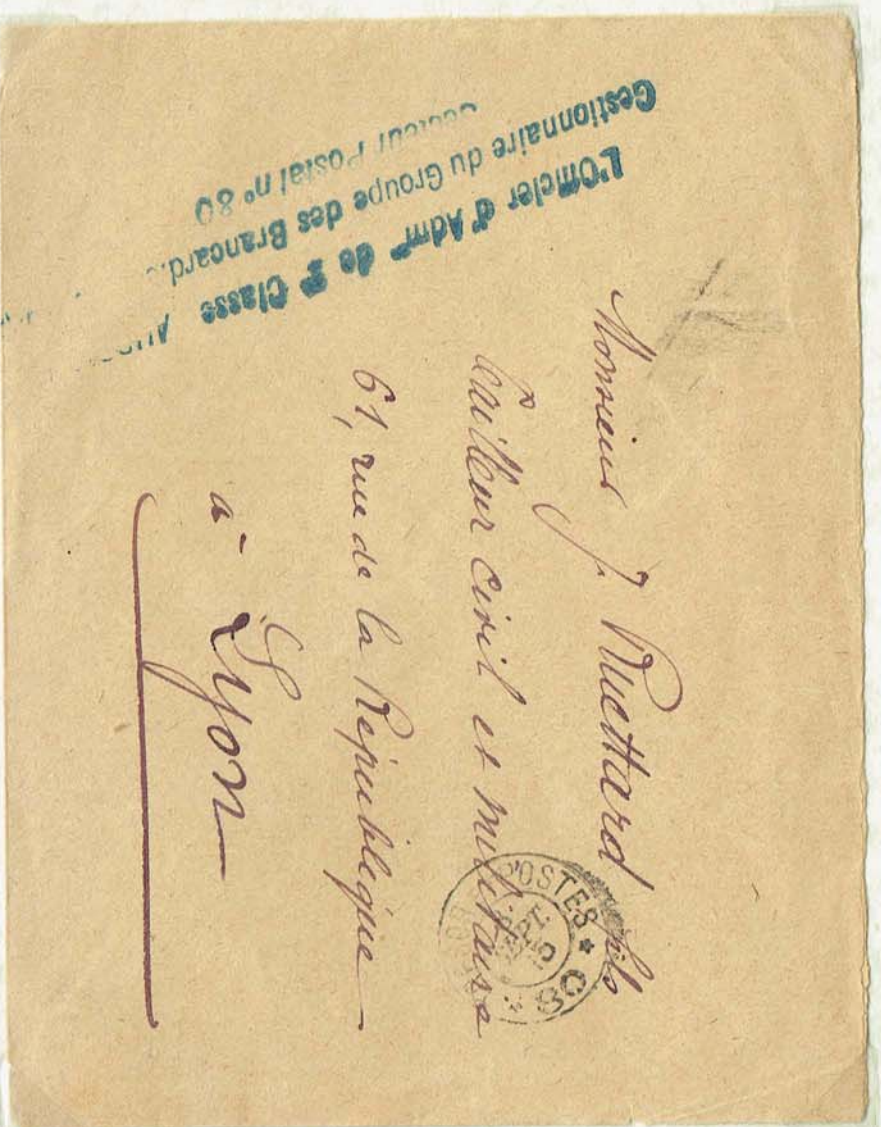 L'Officier d'Adm^on de 3^e Classe
Gestionnaire du Groupe des Brancard...
Secteur Postal n° 80
Monsieur J. Ruettard fils
tailleur civil et militaire
61, rue de la République
à Lyon
POSTES * 80 *
SEPT.
15